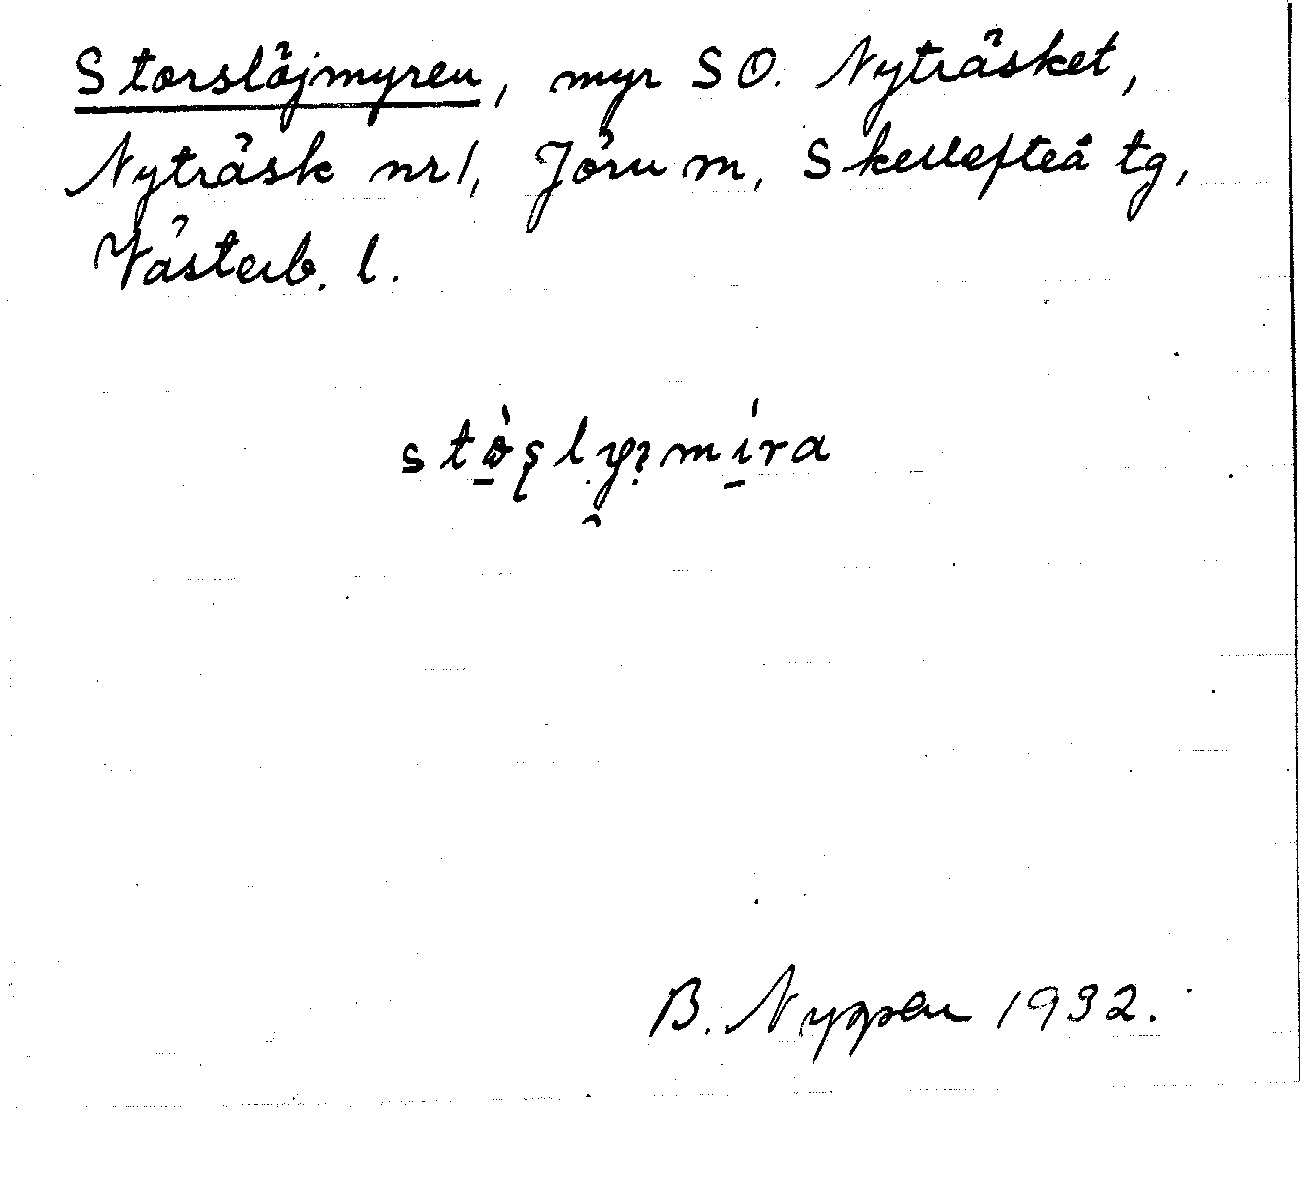 Storslöjmyren, myr SO. Nyträsket,
Nyträsk nr 1, Jörn m, Skellefteå tg,
Västerb. l.
B. Nyppen 1932.